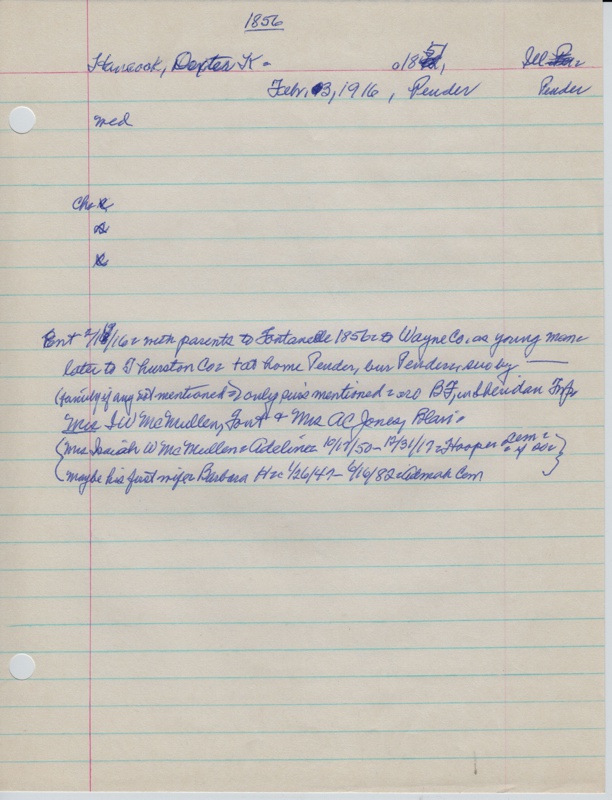 1856
Hancock, Dexter K - a1851, Ill
Febr. 3, 1916, Pender Pender
med
Ch
2/19/16 = with parents to Fontanelle 1856 = to Wayne Co. as young man =
later to Thurston Co = at home Pender, bur Pender, svd by ——
(family if any not mentioned =) only svrs mentioned = bro B F,
Mrs I W McMullen, Font & Mrs AC Jones, Blair =
(Mrs. Isaiah W McMullen = Adeline = 10/17/50 - 12/31/17 = Hooper
maybe his first wife = Barbara H = 1/26/47 - 6/16/82 = Admah Cem)